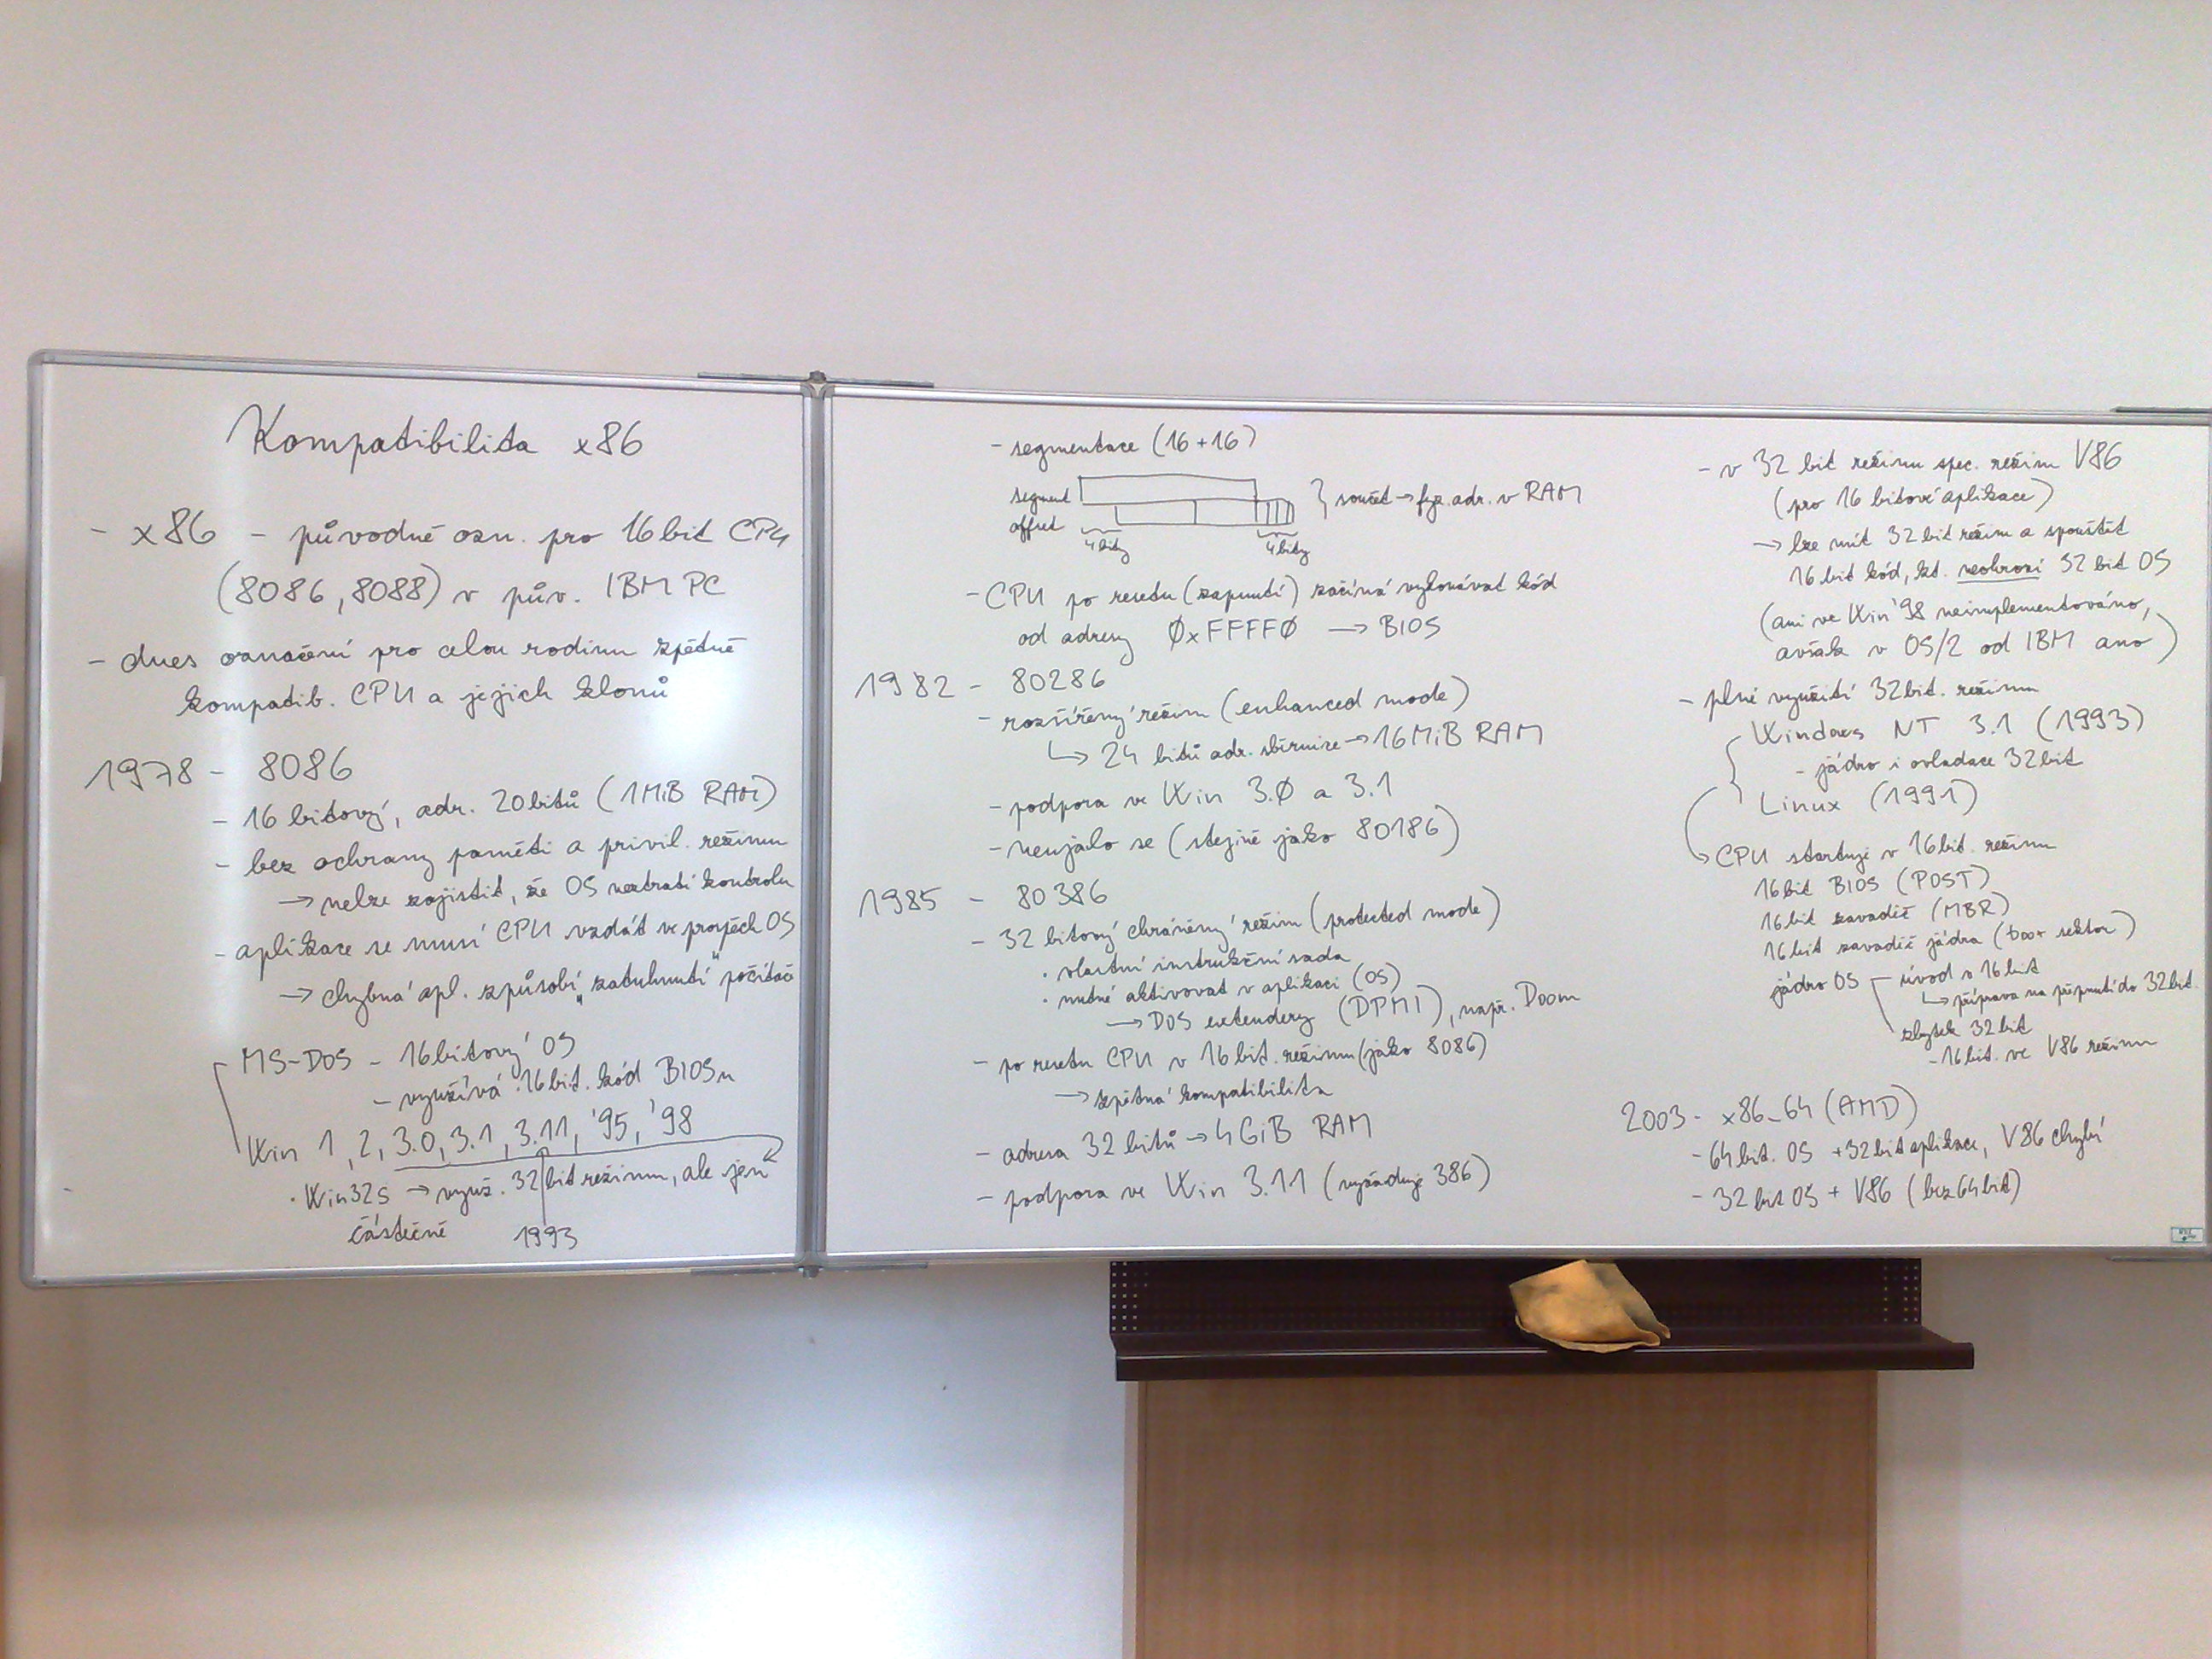 Kompatibilita x86
- x86 - původně ozn. pro 16 bit CPU
(8086, 8088) v pův. IBM PC
- dnes označení pro celou rodinu zpětně
kompatib. CPU a jejich klonů
1978 - 8086
- 16 bitový, adr. 20 bitů (1MiB RAM)
- bez ochrany paměti a privil. režimu
→ nelze zajistit, že OS neztratí kontrolu
- aplikace se musí CPU vzdát ve prospěch OS
→ chybná apl. způsobí „zatuhnutí" počítače
MS-DOS - 16 bitový OS
- využívá 16 bit. kód BIOSu
Win 1, 2, 3.0, 3.1, 3.11, '95, '98
· Win32s → využ. 32 bit režimu, ale jen
částečně
1993
- segmentace (16+16)
segment
offset
4 bity
4 bity
} součet → fyz. adr. v RAM
- CPU po resetu (zapnutí) začíná vykonávat kód
od adresy 0xFFFF0 → BIOS
1982 - 80286
- rozšířený režim (enhanced mode)
↳ 24 bitů adr. sběrnice → 16MiB RAM
- podpora ve Win 3.0 a 3.1
- neujalo se (stejně jako 80186)
1985 - 80386
- 32 bitový chráněný režim (protected mode)
· vlastní instrukční sada
· nutné aktivovat v aplikaci (OS)
→ DOS extendery (DPMI), např. Doom
- po resetu CPU v 16 bit. režimu (jako 8086)
→ zpětná kompatibilita
- adresa 32 bitů → 4GiB RAM
- podpora ve Win 3.11 (vyžaduje 386)
- v 32 bit režimu spec. režim V86
(pro 16 bitové aplikace)
→ lze mít 32 bit režim a spouštět
16 bit kód, kt. neohrozí 32 bit OS
(ani ve Win '98 neimplementováno,
avšak v OS/2 od IBM ano)
- plné využití 32 bit. režimu
Windows NT 3.1 (1993)
- jádro i ovladače 32 bit
Linux (1991)
CPU startuje v 16 bit. režimu
16 bit BIOS (POST)
16 bit zavaděč (MBR)
16 bit zavaděč jádra (boot sektor)
jádro OS - úvod v 16 bit
↳ příprava na přepnutí do 32 bit.
zbytek 32 bit
- 16 bit. ve V86 režimu
2003 - x86_64 (AMD)
- 64 bit. OS + 32 bit aplikace, V86 chybí
- 32 bit OS + V86 (bez 64 bit)